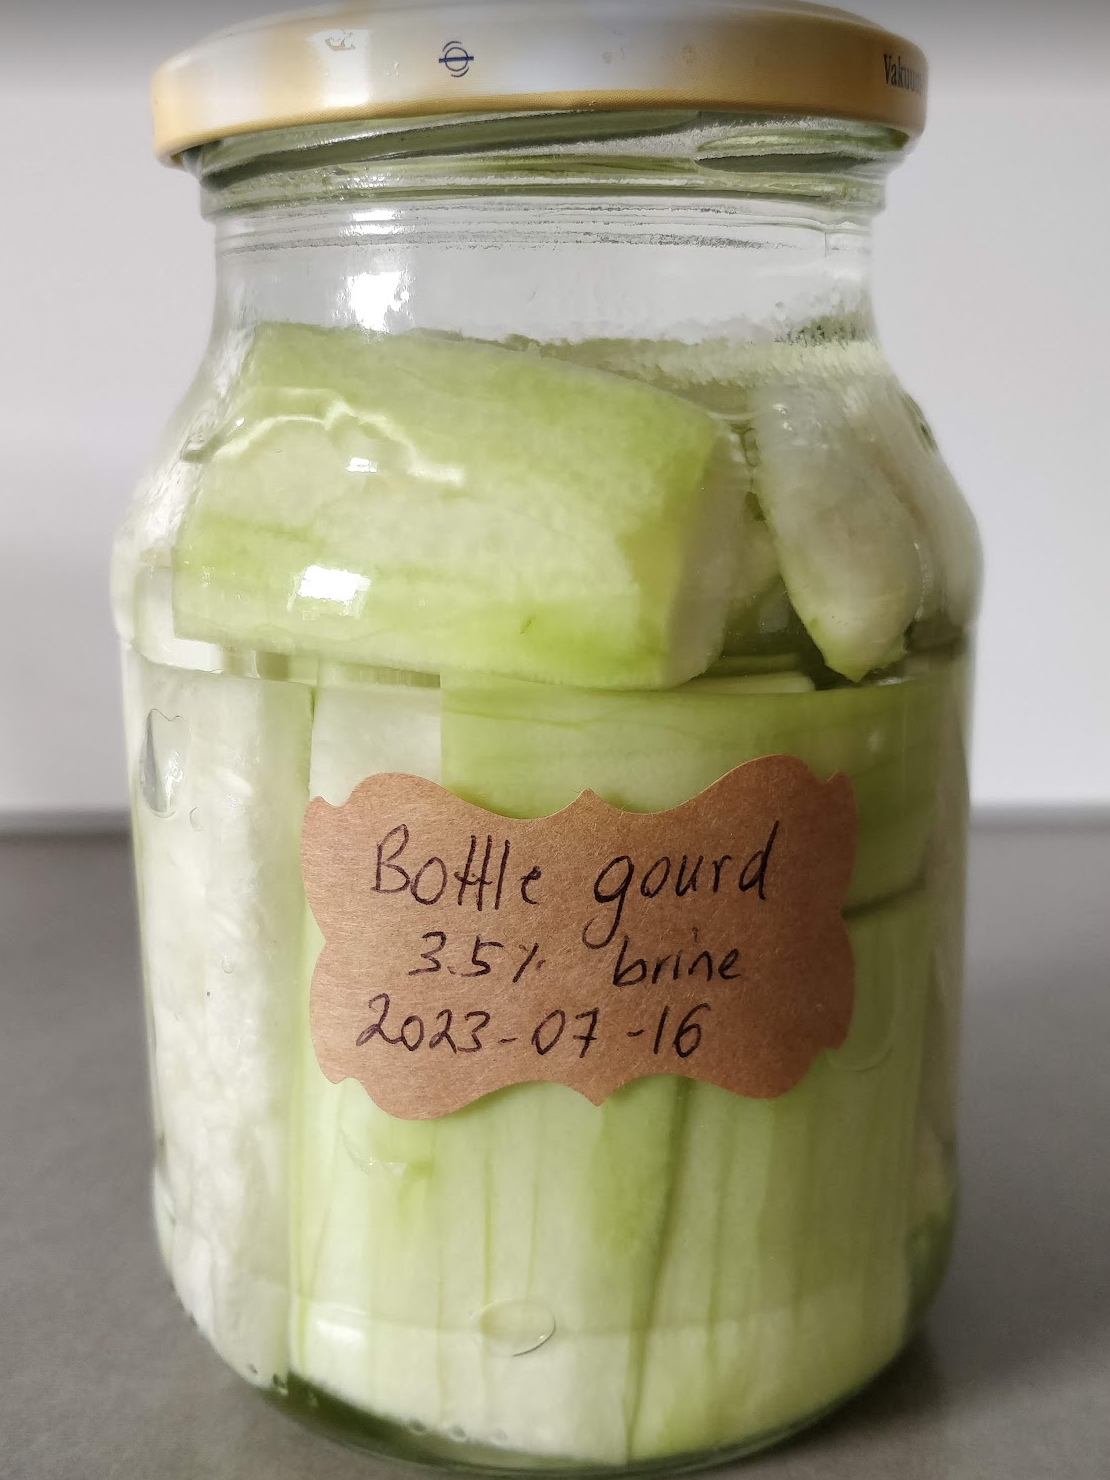 Bottle gourd
3.5% brine
2023-07-16